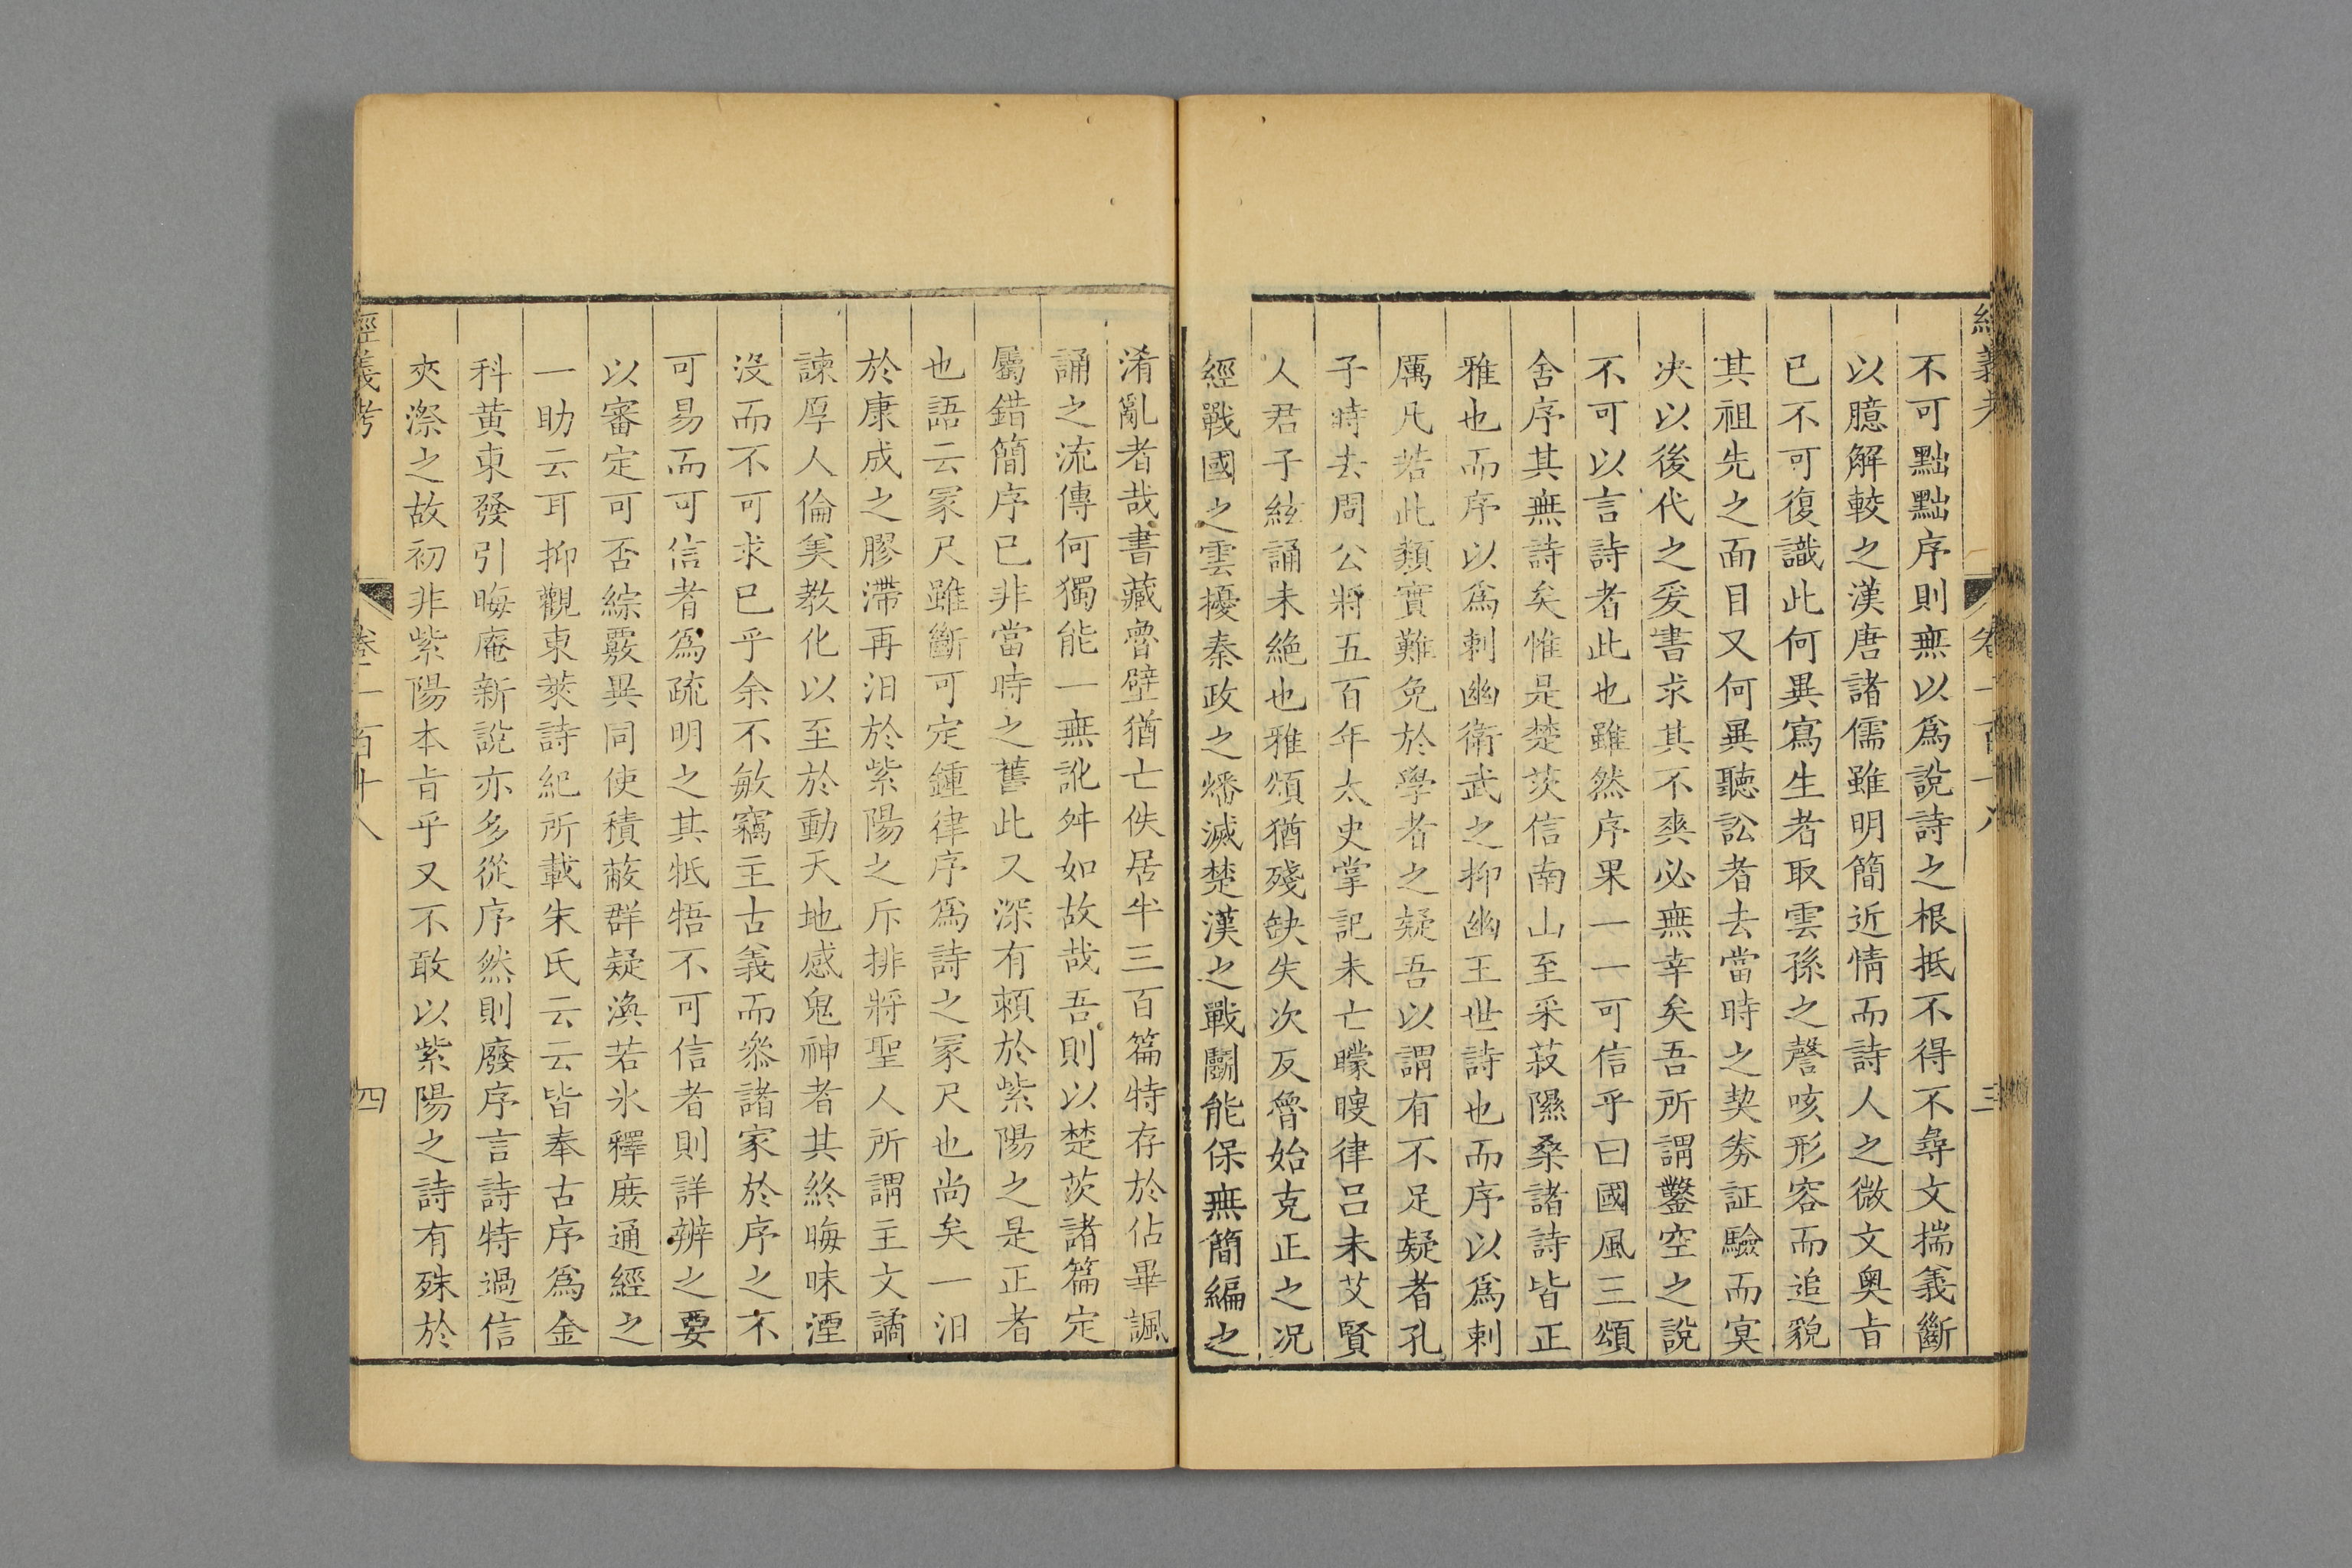 經義考 卷一百十八 三
不可黜黜序則無以爲說詩之根抵不得不尋文揣義斷
以臆解較之漢唐諸儒雖明簡近情而詩人之微文奥旨
已不可復識此何異寫生者取雲孫之謦咳形容而追貌
其祖先之面目又何異聽訟者去當時之契券証驗而㝠
决以後代之爰書求其不爽必無幸矣吾所謂鑿空之說
不可以言詩者此也雖然序果一一可信乎曰國風三頌
舍序其無詩矣惟是楚茨信南山至采菽隰桑諸詩皆正
雅也而序以爲刺幽衛武之抑幽王世詩也而序以爲刺
厲凡若此類實難免於學者之疑吾以謂有不足疑者孔
子時去周公將五百年太史掌記未亡矇瞍律吕未艾賢
人君子絃誦未絶也雅頌猶殘缺失次反魯始克正之况
經戰國之雲擾秦政之燔滅楚漢之戰鬬能保無簡編之
淆亂者哉書藏魯壁猶亡佚居半三百篇特存於佔畢諷
誦之流傳何獨能一無訛舛如故哉吾則以楚茨諸篇定
屬錯簡序已非當時之舊此又深有賴於紫陽之是正者
也語云冢尺雖斷可定鍾律序爲詩之冢尺也尚矣一汨
於康成之膠滯再汨於紫陽之斥排將聖人所謂主文譎
諫厚人倫美教化以至於動天地感鬼神者其終晦昧湮
没而不可求已乎余不敏竊主古義而叅諸家於序之不
可易而可信者爲疏明之其牴牾不可信者則詳辨之要
以審定可否綜覈異同使積蔽群疑渙若氷釋庻通經之
一助云耳抑觀東萊詩紀所載朱氏云云皆奉古序爲金
科黄東發引晦庵新說亦多從序然則廢序言詩特過信
夾漈之故初非紫陽本旨乎又不敢以紫陽之詩有殊於
經義考 卷一百十八 四